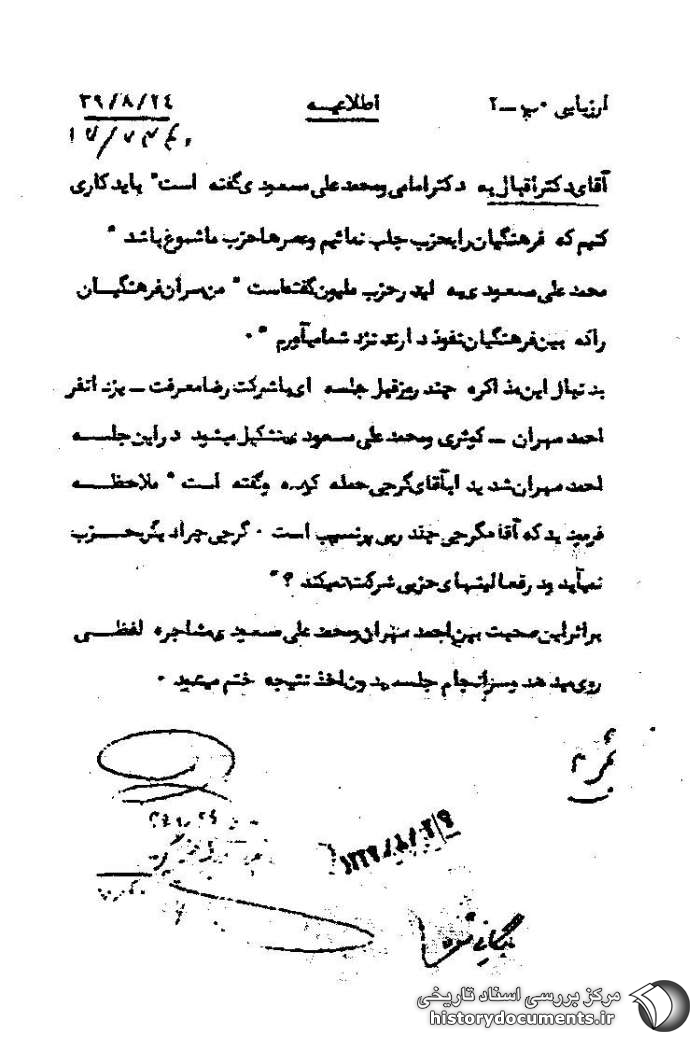 ارزیابی ب - ۲ اطلاعیه ۳۹/۸/۲۴
آقای دکتر اقبال به دکتر امامی و محمد علی مسعودی گفته است " باید کاری
کنیم که فرهنگیان را بحزب جلب نمائیم و عصرها حزب ما شلوغ باشد "
محمد علی مسعودی به لیدر حزب ملیون گفته است " من سران فرهنگیان
را که بین فرهنگیان نفوذ دارند نزد شما میآورم " ۰
بدنبال این مذاکره چند روز قبل جلسه ای با شرکت رضا معرفت - یزدانفر
احمد مهران - کوثری و محمد علی مسعودی تشکیل میشود در این جلسه
احمد مهران شدیدا بآقای گرجی حمله کرده و گفته است " ملاحظه
فرمائید که آقای گرجی چقدر بی پرنسیپ است ۰ گرجی چرا دیگر حزب
نمیآید و در فعالیتهای حزبی شرکت نمیکند ؟ "
براثر این صحبت بین احمد مهران و محمد علی مسعودی مشاجره لفظی
روی میدهد و سرانجام جلسه بدون اخذ نتیجه ختم میشود ۰
بایگانی شود
مرکز بررسی اسناد تاریخی
historydocuments.ir